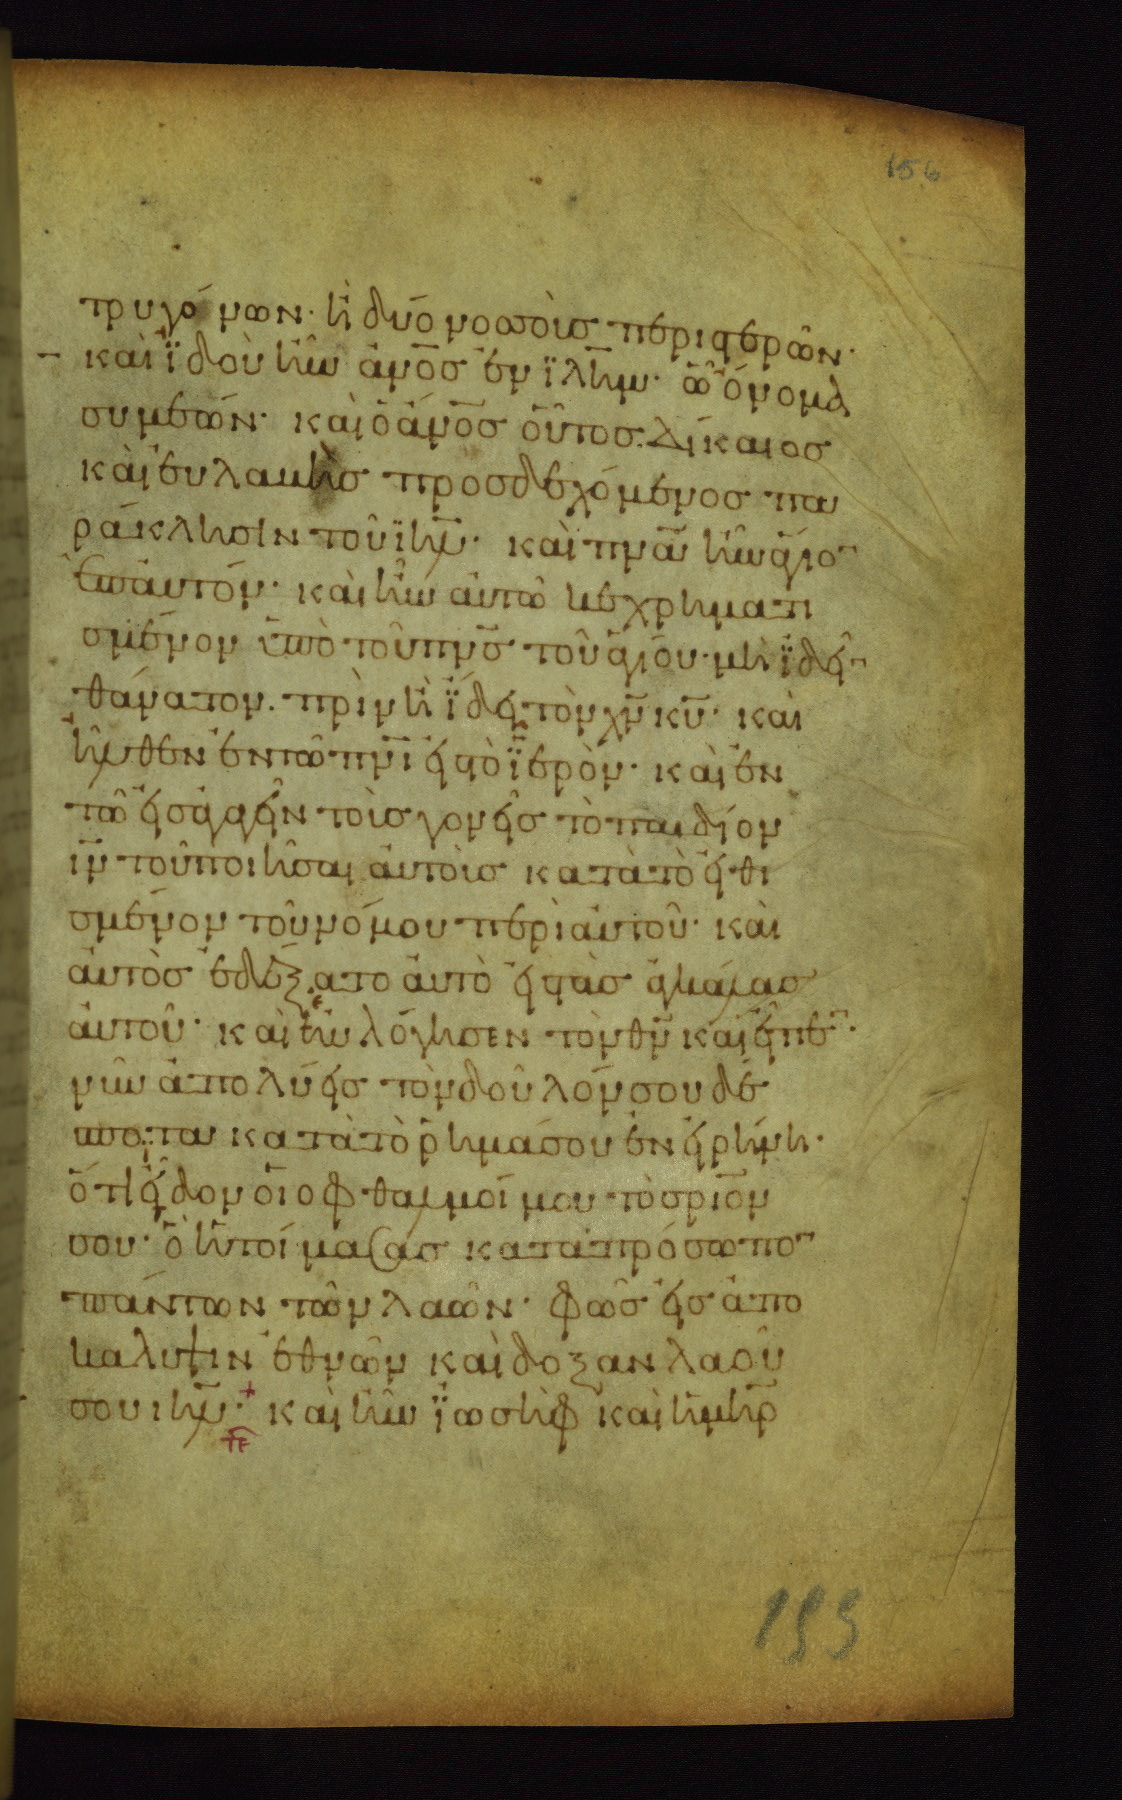 156
τρυγόνων· ἢ δύο νοσσοὺς περιστερῶν·
καὶ ἰδοὺ ἦν ἄνο̅ς̅ ἐν ϊλ̅η̅μ̅· ὧ ὄνομα
συμεών· καὶ ὁ ἄνο̅ς̅ οὗτος δίκαιος
καὶ εὐλαβὴς προσδεχόμενος πα
ράκλησιν τοῦ ϊη̅λ̅· καὶ πν̅α̅ ἦν ἅγιο
ἐπ αὐτόν· καὶ ἦν αὐτῶ κεχρηματι
σμένον ὑπὸ τοῦ πν̅ς̅ τοῦ ἁγίου· μὴ ἰδεῖ
θάνατον· πρὶν ἢ ἴδει τὸν χν̅ κυ̅· καὶ
ἦλθεν ἐν τῶ πν̅ι̅ εἰς τὸ ϊερὸν· καὶ ἐν
τῶ εἰσαγαγεῖν τοὺς γονεῖς τὸ παιδίον
ιν̅ τοῦ ποιῆσαι αὐτοὺς κατὰ τὸ εἰθι
σμένον τοῦ νόμου περὶ αὐτοῦ· καὶ
αὐτὸς ἐδέξατο αὐτὸ εἰς τὰς ἀγκάλας
αὐτοῦ· καὶ εὐλόγησεν τὸν θν̅ καὶ εἶπε·
νῦν ἀπολύεις τὸν δοῦλόν σου δέ
σποτα κατὰ τὸ ῥῆμά σου ἐν εἰρήνη·
ὅτι εἶδον οἱ οφθαλμοί μου τὸ σρι̅ον
σου· ὃ ἡτοίμασας κατα πρόσωπο
πάντων τῶν λαῶν· φῶς εἰς ἀπο
καλυψιν ἐθνῶν καὶ δοξαν λαοῦ
σου ιη̅λ̅· καὶ ἦν ϊωσὴφ καὶ ἡ μη̅ρ̅